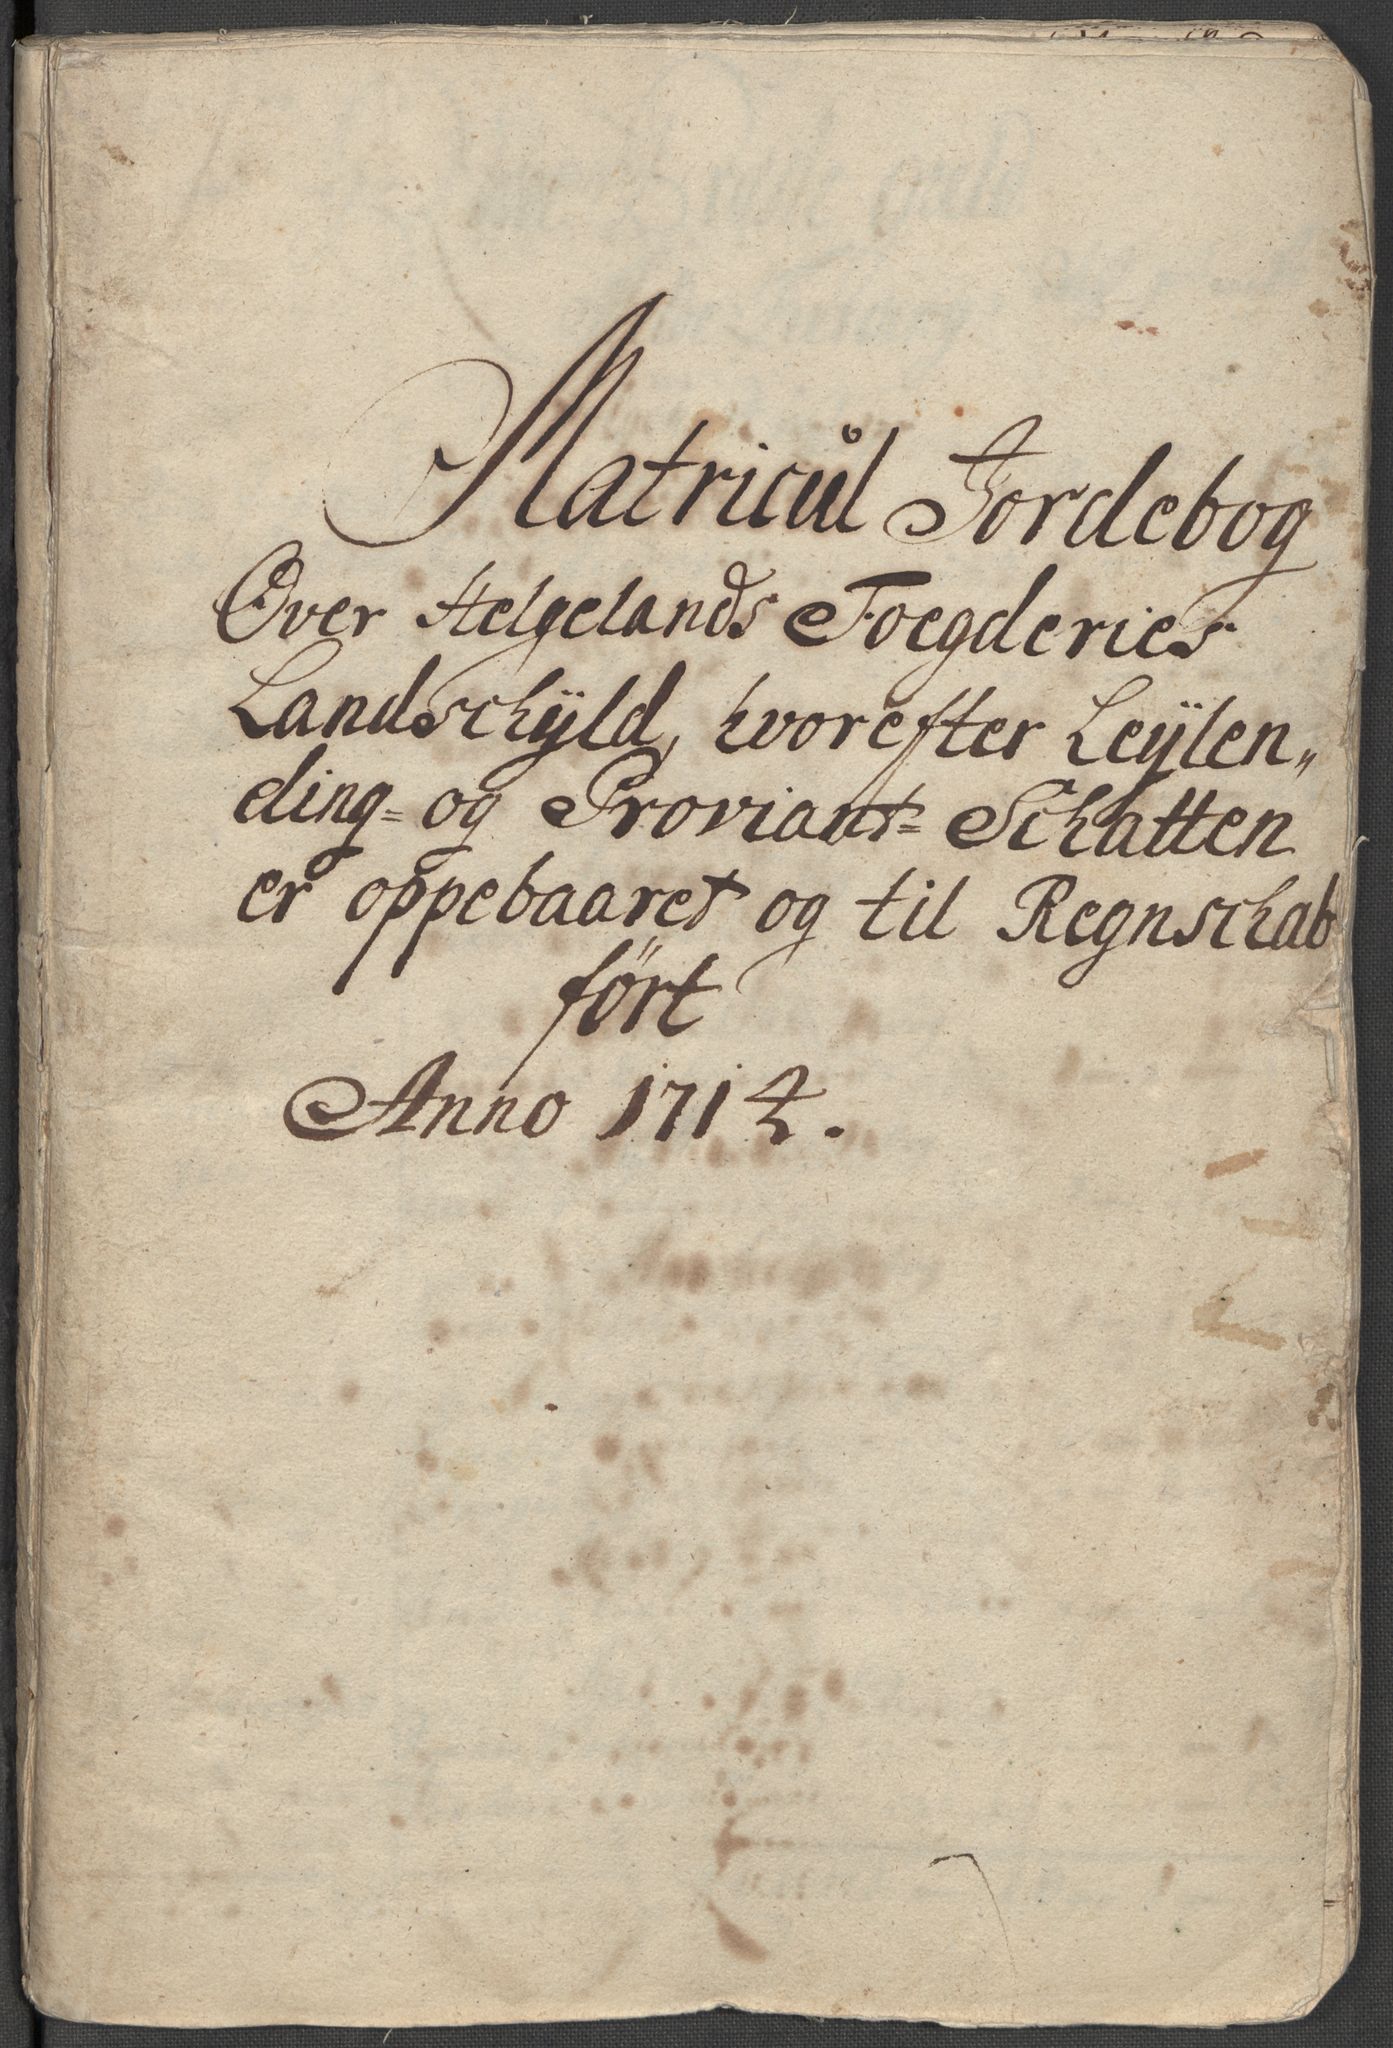 Matricul Jordebog
Over Helgelands Foegderies
Landschÿld, hvorefter Leÿlen„
ding= og Proviant= Schatten
er oppebaaret og til Regnschab
ført
Anno 1714.